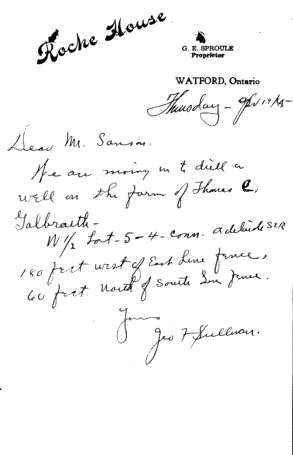 Roche House
G. E. SPROULE
Proprietor
WATFORD, Ontario
Thursday -
Dear Mr. Sanson.
We are moving in to drill a
well on the farm of Thomas C.
Galbraith -
W 1/2 Lot - 5 - 4 - Conn. Adelaide S E R
180 feet west of East Line fence,
60 feet North of South Line fence.
Yours
Geo F Sullivan.